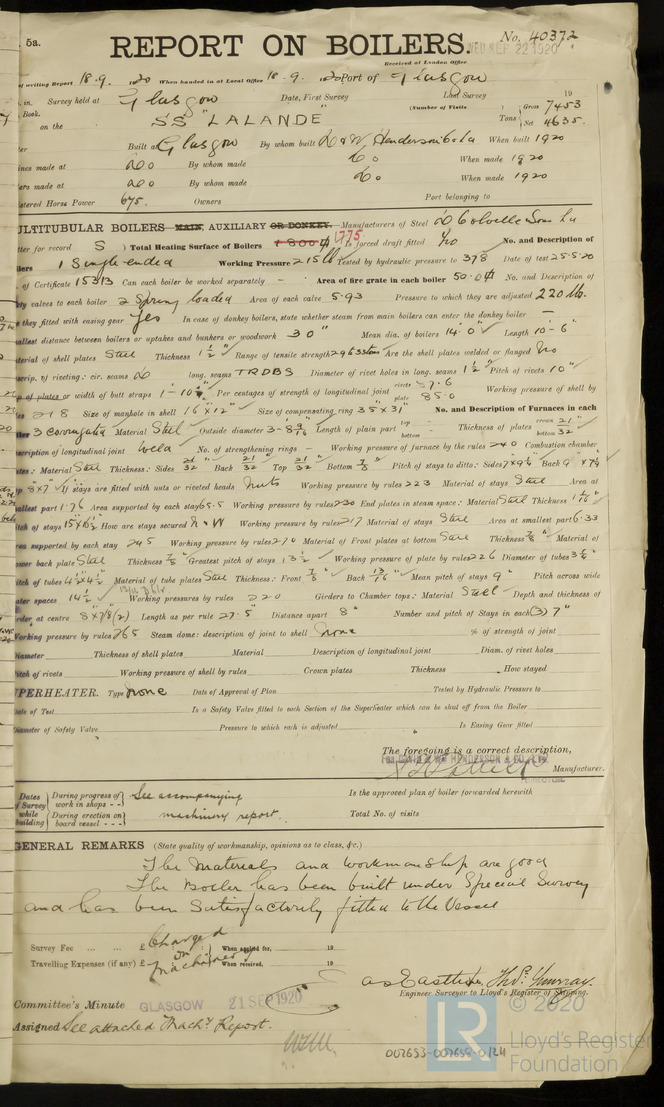 5a.
REPORT ON BOILERS.
No. 40372
WED SEP 22 1920
Received at London Office
of writing Report 18.9.1920 When handed in at Local Office 18.9.1920 Port of Glasgow
in. Survey held at Glasgow Date, First Survey Last Survey 19
Book. (Number of Visits ) Gross 7453
on the SS "LALANDE" Tons Net 4635.
Built at Glasgow By whom built D & W Henderson & Co Ld When built 1920
ines made at do By whom made do When made 1920
ers made at do By whom made do When made 1920
istered Horse Power 675. Owners Port belonging to
ULTITUBULAR BOILERS MAIN, AUXILIARY OR DONKEY. Manufacturers of Steel D Colville & Sons Ld
tter for record S ) Total Heating Surface of Boilers 1800 1775 Is forced draft fitted No No. and Description of
ilers 1 Single ended Working Pressure 215 lb Tested by hydraulic pressure to 378 Date of test 25.5.20
of Certificate 15313 Can each boiler be worked separately - Area of fire grate in each boiler 50.0 No. and Description of
ety valves to each boiler 2 Spring loaded Area of each valve 5.93 Pressure to which they are adjusted 220 lb.
they fitted with easing gear Yes In case of donkey boilers, state whether steam from main boilers can enter the donkey boiler -
allest distance between boilers or uptakes and bunkers or woodwork 30" Mean dia. of boilers 14'0" Length 10'-6"
terial of shell plates Steel Thickness 1 1/2" Range of tensile strength 29.6 33 tons Are the shell plates welded or flanged No
scrip. of riveting: cir. seams do long. seams TRDBS Diameter of rivet holes in long. seams 1 1/2" Pitch of rivets 10"
ap of plates or width of butt straps Per centages of strength of longitudinal joint rivets 87.6 plate 85.0 Working pressure of shell by
les 218 Size of manhole in shell 16" x 12" Size of compensating ring 35 x 31" No. and Description of Furnaces in each
iler 3 Corrugated Material Steel Outside diameter 3-8 9/16" Length of plain part top bottom Thickness of plates crown 21/32" bottom
escription of longitudinal joint Weld No. of strengthening rings - Working pressure of furnace by the rules 240 Combustion chamber
ates: Material Steel Thickness: Sides 21/32" Back 21/32" Top 21/32" Bottom 7/8" Pitch of stays to ditto: Sides Back
op 8 x 7" If stays are fitted with nuts or riveted heads Nuts Working pressure by rules 223 Material of stays Steel Area at
allest part 1.76 Area supported by each stay 65.5 Working pressure by rules 230 End plates in steam space: Material Steel Thickness
itch of stays How are stays secured N & W Working pressure by rules 217 Material of stays Steel Area at smallest part 6.33
rea supported by each stay 245 Working pressure by rules 270 Material of Front plates at bottom Steel Thickness 7/8" Material of
ower back plate Steel Thickness 7/8" Greatest pitch of stays 13 1/2" Working pressure of plate by rules 226 Diameter of tubes 3 1/4"
itch of tubes 4 1/2 x 4 1/2" Material of tube plates Steel Thickness: Front 7/8" Back 13/16" Mean pitch of stays 9" Pitch across wide
ater spaces 14 1/2" Working pressures by rules 220 Girders to Chamber tops: Material Steel Depth and thickness of
irder at centre 8 x 7/8 (2) Length as per rule 27.5" Distance apart 8" Number and pitch of Stays in each (3) 7"
Working pressure by rules 265 Steam dome: description of joint to shell None % of strength of joint
Diameter Thickness of shell plates Material Description of longitudinal joint Diam. of rivet holes
Pitch of rivets Working pressure of shell by rules Crown plates Thickness How stayed
UPERHEATER. Type None Date of Approval of Plan Tested by Hydraulic Pressure to
Date of Test Is a Safety Valve fitted to each Section of the Superheater which can be shut off from the Boiler
Diameter of Safety Valve Pressure to which each is adjusted Is Easing Gear fitted
The foregoing is a correct description,
Manufacturer.
Dates of Survey while building During progress of work in shops - - See accompanying Is the approved plan of boiler forwarded herewith
During erection on board vessel - - - machinery report. Total No. of visits
GENERAL REMARKS (State quality of workmanship, opinions as to class, &c.)
The Materials and workmanship are good
The Boiler has been built under Special Survey
and has been Satisfactorily fitted to the Vessel
Survey Fee ... ... £ Charged When applied for, 19
Travelling Expenses (if any) £ on machinery When received, 19
Engineer Surveyor to Lloyd's Register of Shipping.
Committee's Minute GLASGOW 21 SEP 1920
Assigned See attached Machy. Report.
007653-007659-0124
LR © 2020
Lloyd's Register
Foundation